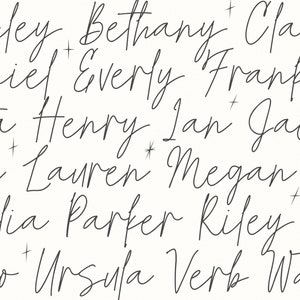 ley Bethany Cla
iel Everly Frank
a Henry Ian Ja
Lauren Megan
lia Parker Riley
o Ursula Verb Wa